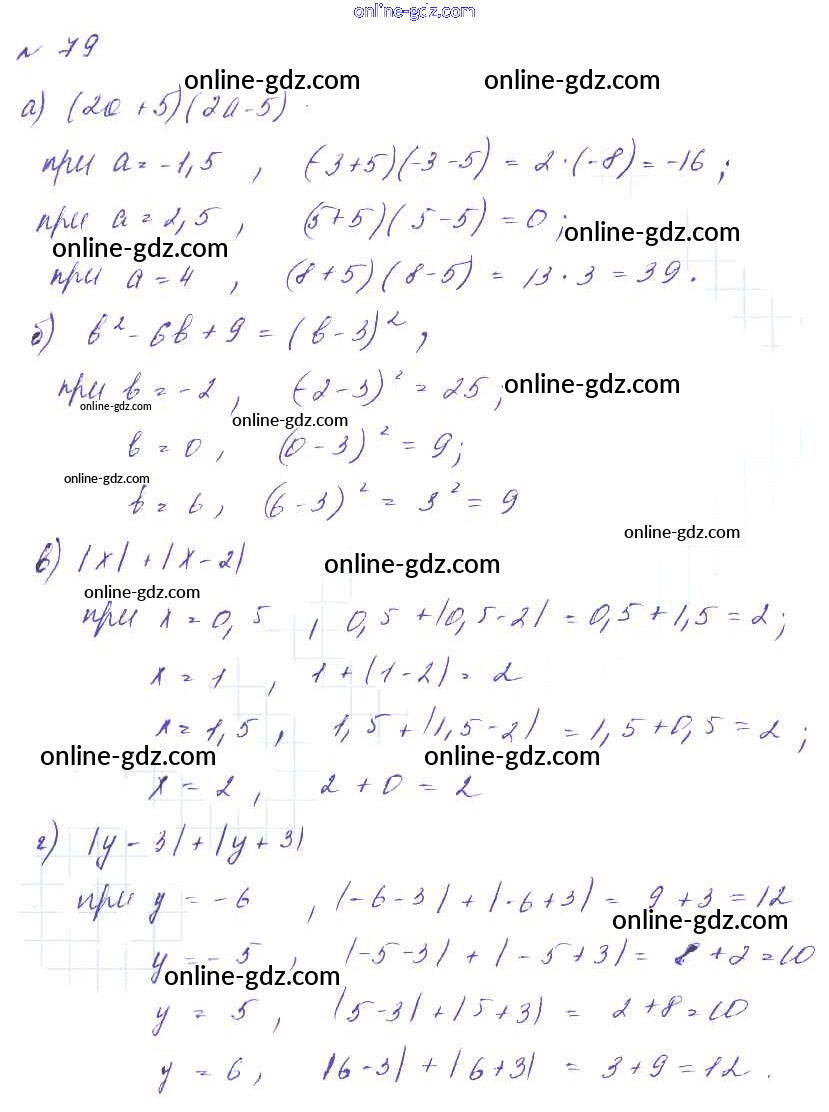 online-gdz.com
№ 79
online-gdz.com online-gdz.com
а) (2a + 5)(2a - 5)
при a = -1,5 , (-3+5)(-3-5) = 2·(-8) = -16 ;
при a = 2,5 , (5+5)(5-5) = 0 ; online-gdz.com
online-gdz.com
при a = 4 , (8+5)(8-5) = 13 · 3 = 39 .
б) b² - 6b + 9 = (b - 3)² ,
при b = -2 , (-2-3)² = 25 ; online-gdz.com
online-gdz.com online-gdz.com
b = 0 , (0-3)² = 9 ;
online-gdz.com
b = 6 , (6-3)² = 3² = 9
online-gdz.com
в) |x| + |x - 2| online-gdz.com
online-gdz.com
при x = 0,5 , 0,5 + |0,5 - 2| = 0,5 + 1,5 = 2 ;
x = 1 , 1 + (1 - 2) = 2
x = 1,5 , 1,5 + |1,5 - 2| = 1,5 + 0,5 = 2 ;
online-gdz.com online-gdz.com
x = 2 , 2 + 0 = 2
г) |y - 3| + |y + 3|
при y = -6 , |-6-3| + |-6+3| = 9 + 3 = 12
online-gdz.com
y = -5 , |-5-3| + |-5+3| = 8 + 2 = 10
online-gdz.com
y = 5 , |5-3| + |5+3| = 2 + 8 = 10
y = 6 , |6-3| + |6+3| = 3 + 9 = 12 .